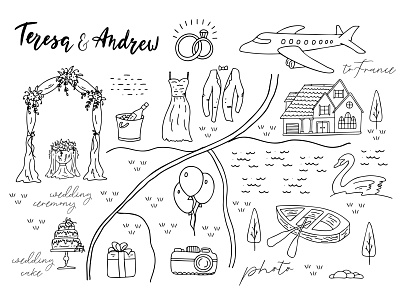 Teresa & Andrew
to France
wedding
ceremony
wedding
cake
photo